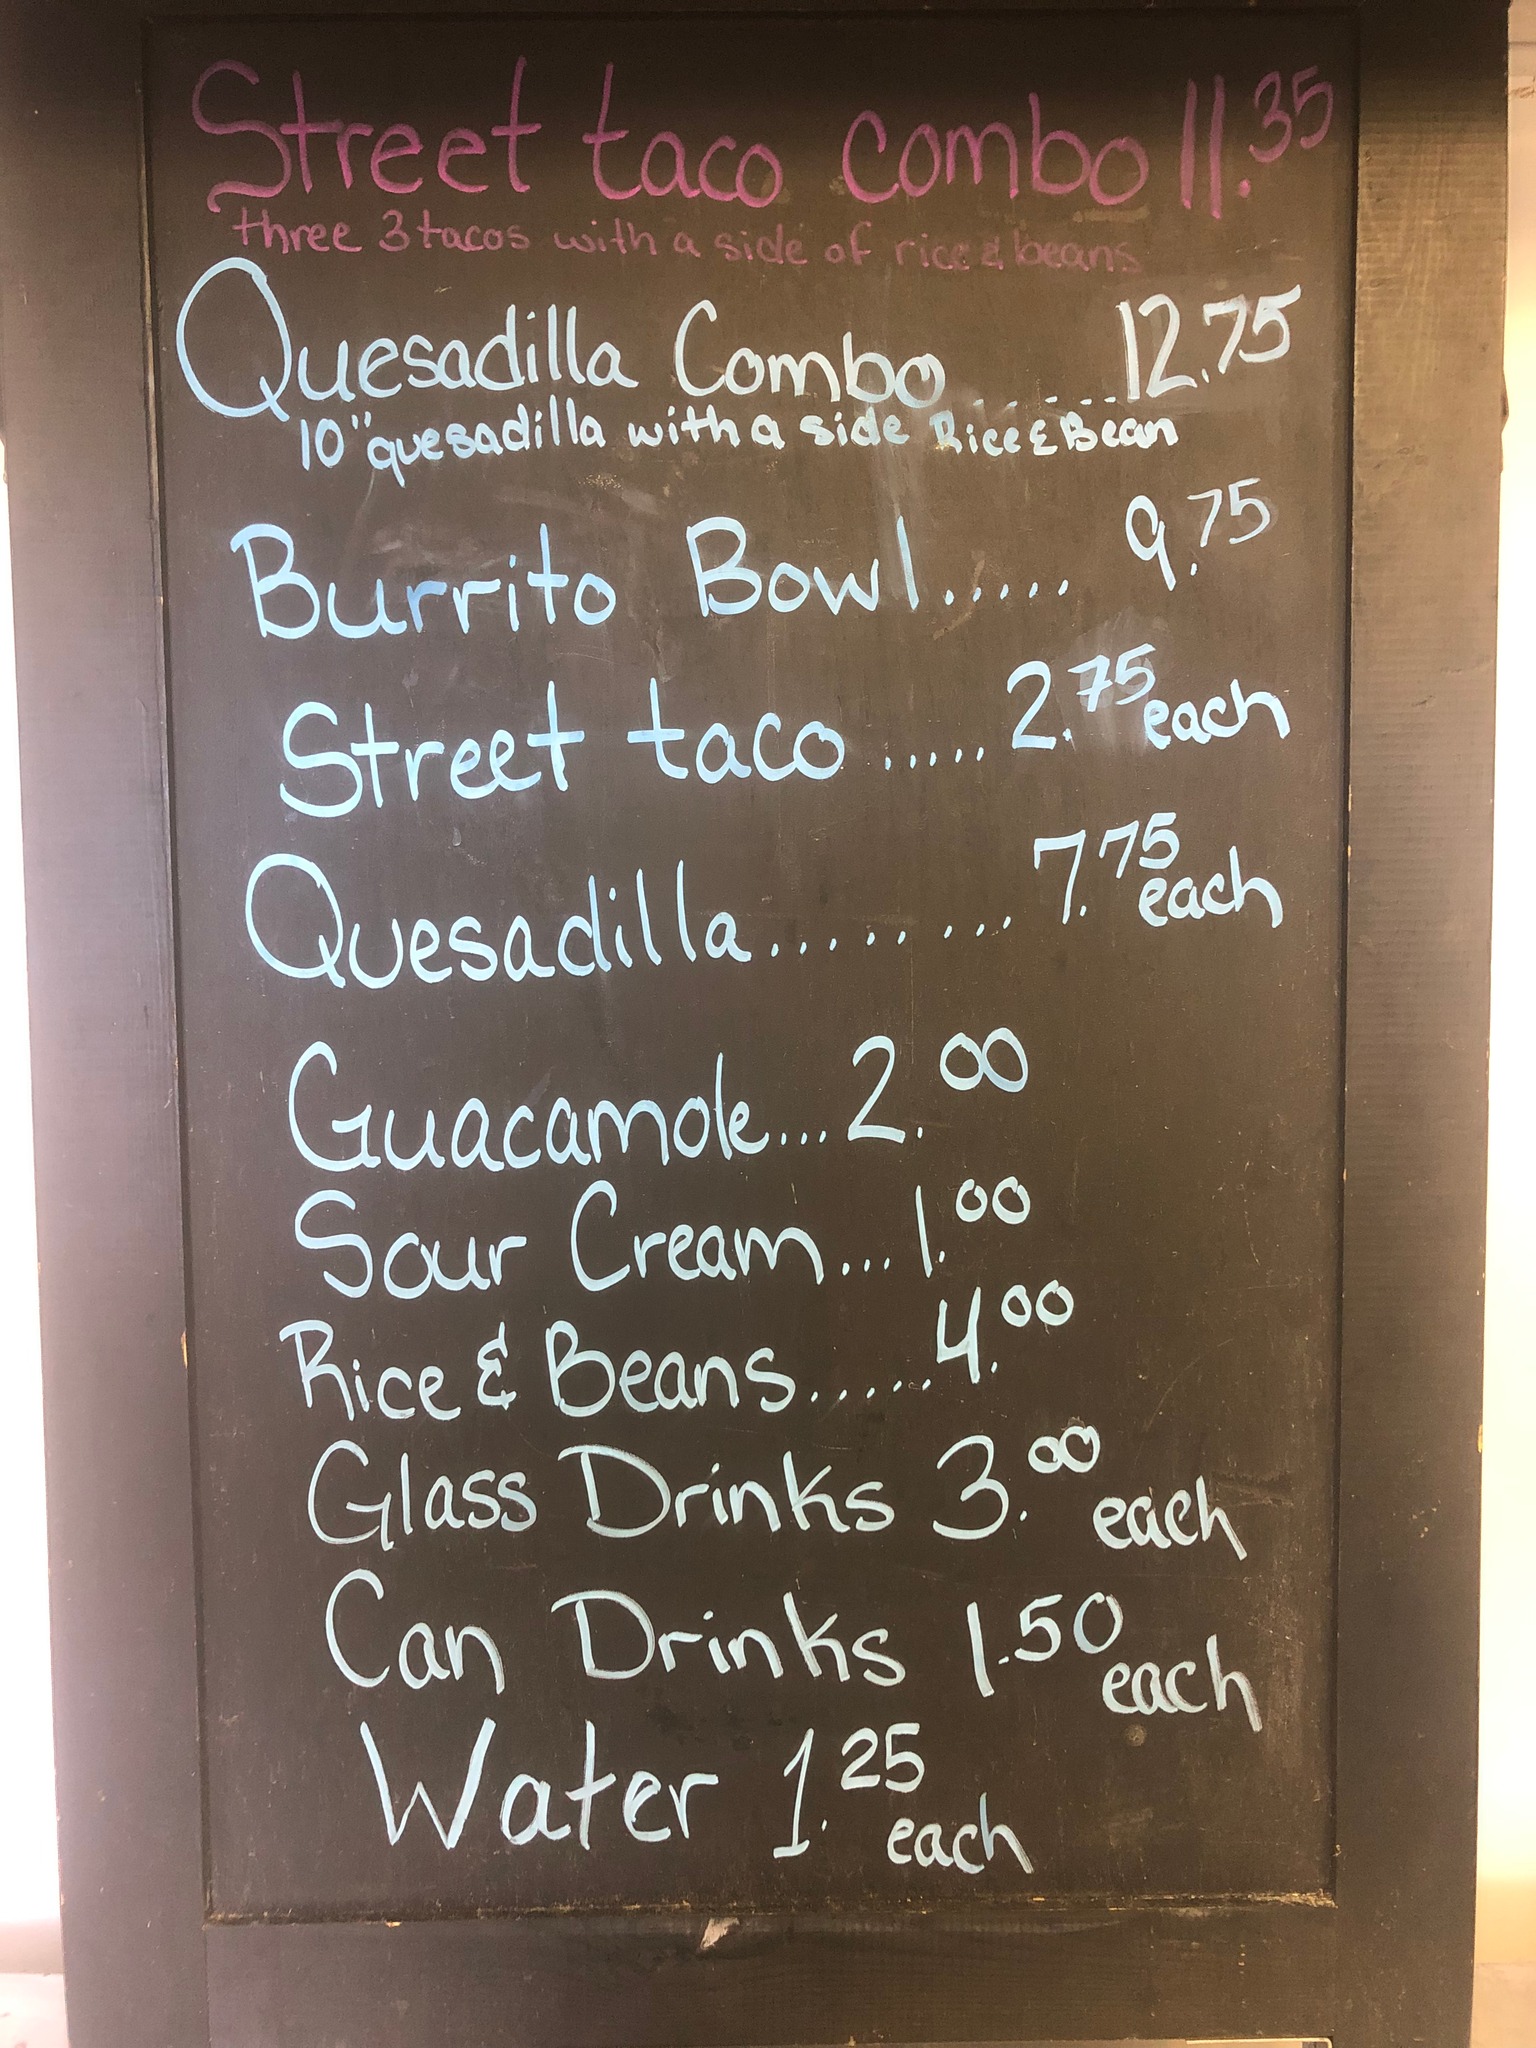 Street taco combo 11.35
three 3 tacos with a side of rice & beans
Quesadilla Combo......12.75
10" quesadilla with a side Rice & Bean
Burrito Bowl..... 9.75
Street taco ..... 2.75 each
Quesadilla......... 7.75 each
Guacamole... 2.00
Sour Cream... 1.00
Rice & Beans...... 4.00
Glass Drinks 3.00 each
Can Drinks 1.50 each
Water 1.25 each